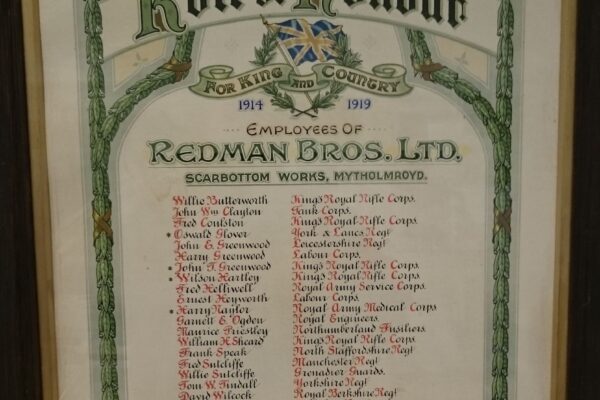 Roll of Honour
FOR KING AND COUNTRY
1914 1919
EMPLOYEES OF
REDMAN BROS. LTD.
SCARBOTTOM WORKS, MYTHOLMROYD.
Willie Butterworth King's Royal Rifle Corps.
John Wm Clayton Tank Corps.
Fred Coulston King's Royal Rifle Corps.
* Oswald Glover York & Lancs Regt
John E. Greenwood Leicestershire Regt
Harry Greenwood Labour Corps.
* John T. Greenwood King's Royal Rifle Corps.
* Wilson Hartley King's Royal Rifle Corps.
Fred Helliwell Royal Army Service Corps.
Ernest Heyworth Labour Corps.
* Harry Naylor Royal Army Medical Corps
Garnett E. Ogden Royal Engineers.
Maurice Priestley Northumberland Fusiliers.
William H. Sheard King's Royal Rifle Corps.
Frank Speak North Staffordshire Regt
Fred Sutcliffe Manchester Regt
Willie Sutcliffe Grenadier Guards.
Tom W. Tindall Yorkshire Regt
David Wilcock Royal Berkshire Regt